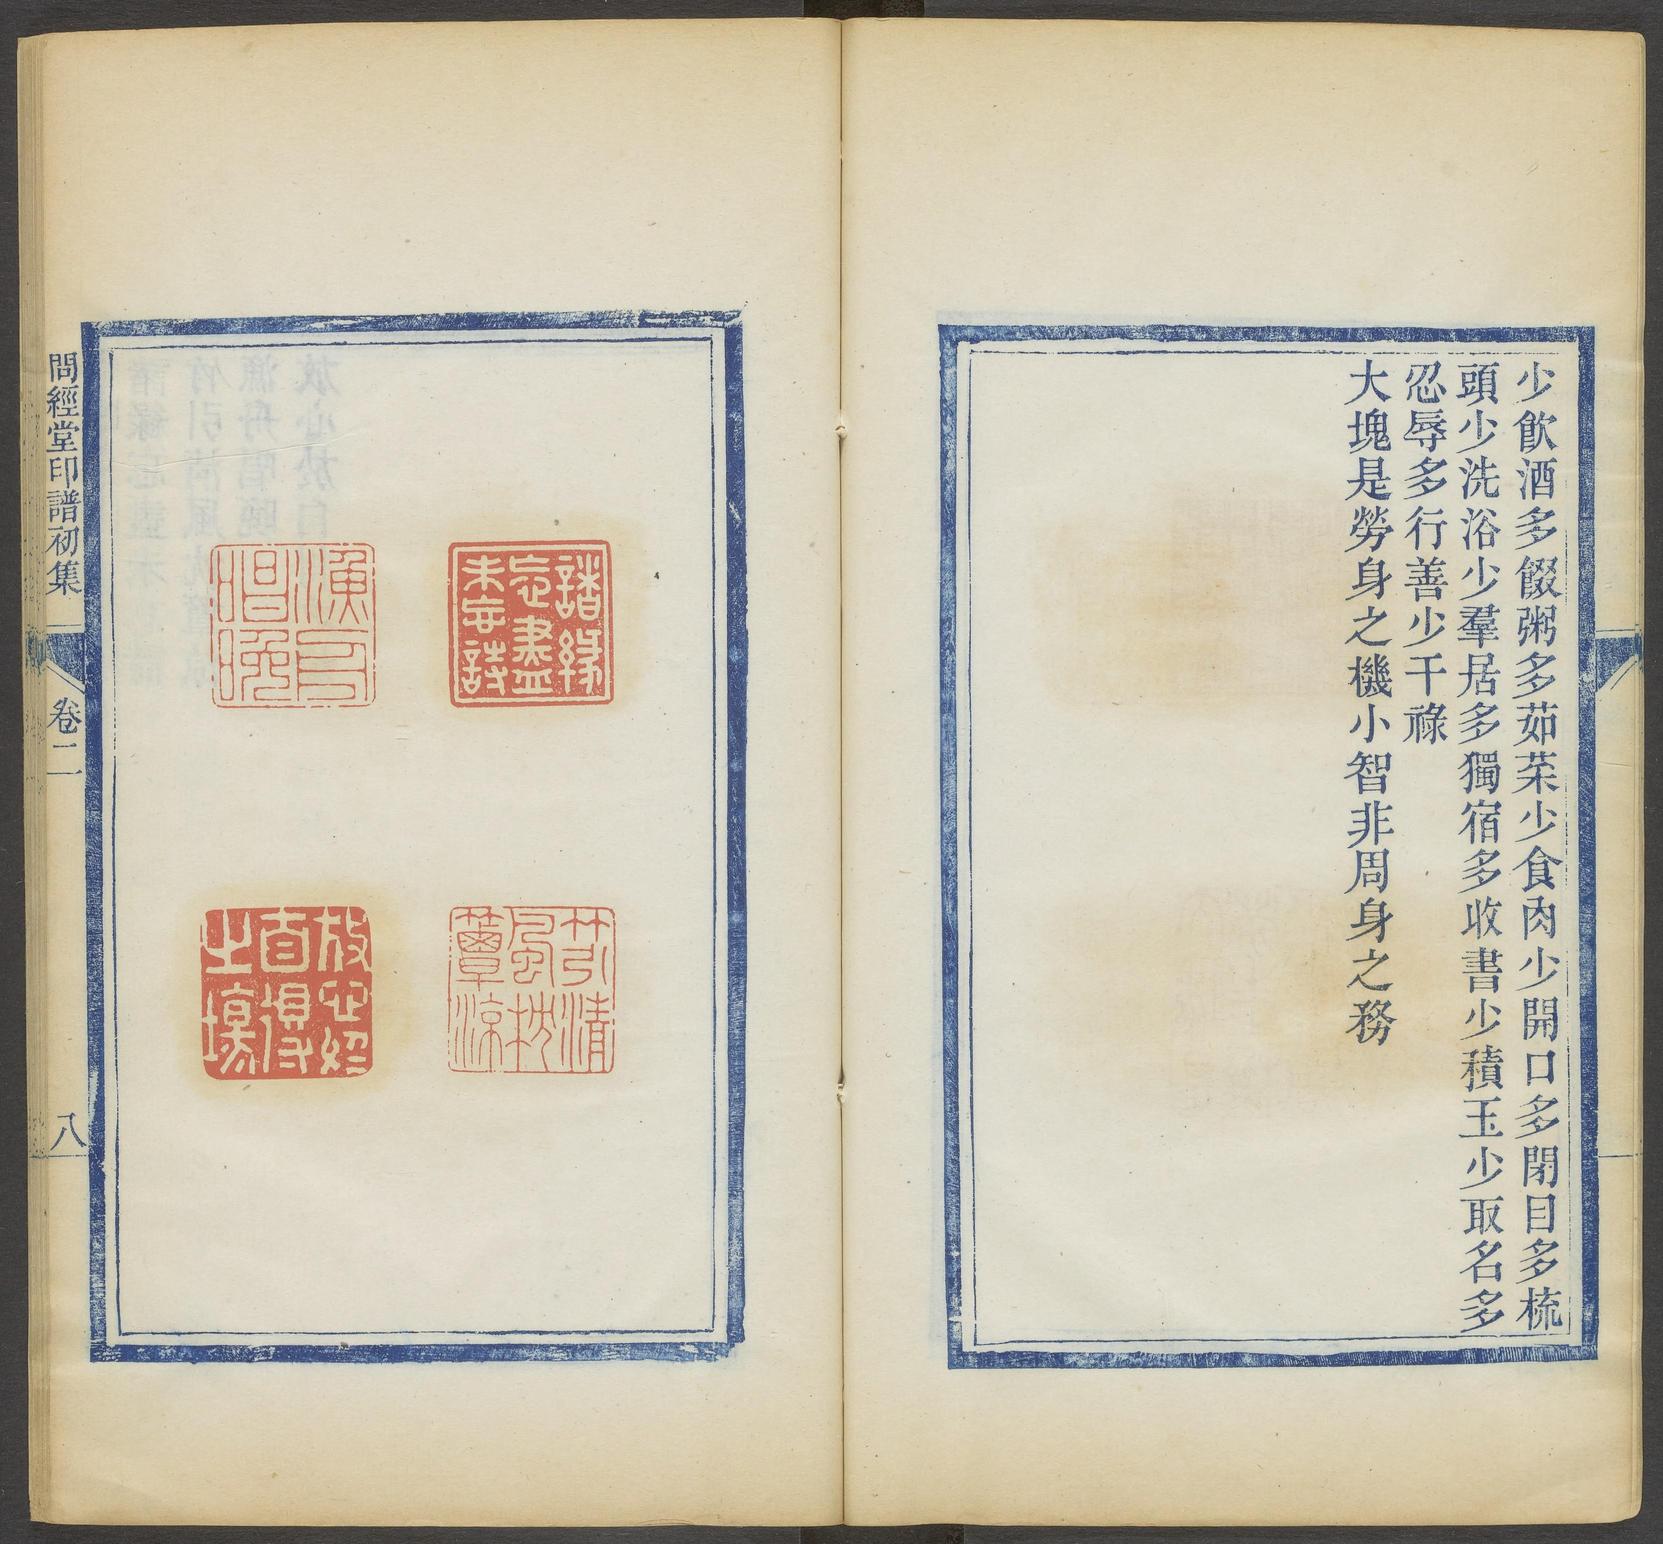 少飮酒多餟粥多茹菜少食肉少開口多閉目多梳
頭少洗浴少羣居多獨宿多收書少積玉少取名多
忍辱多行善少干祿
大塊是勞身之機小智非周身之務
諸緣
忘盡
未忘詩
漁舟
唱晚
竹引清
風枕
簟涼
放心於
自得
之場
問經堂印譜初集
卷二
八